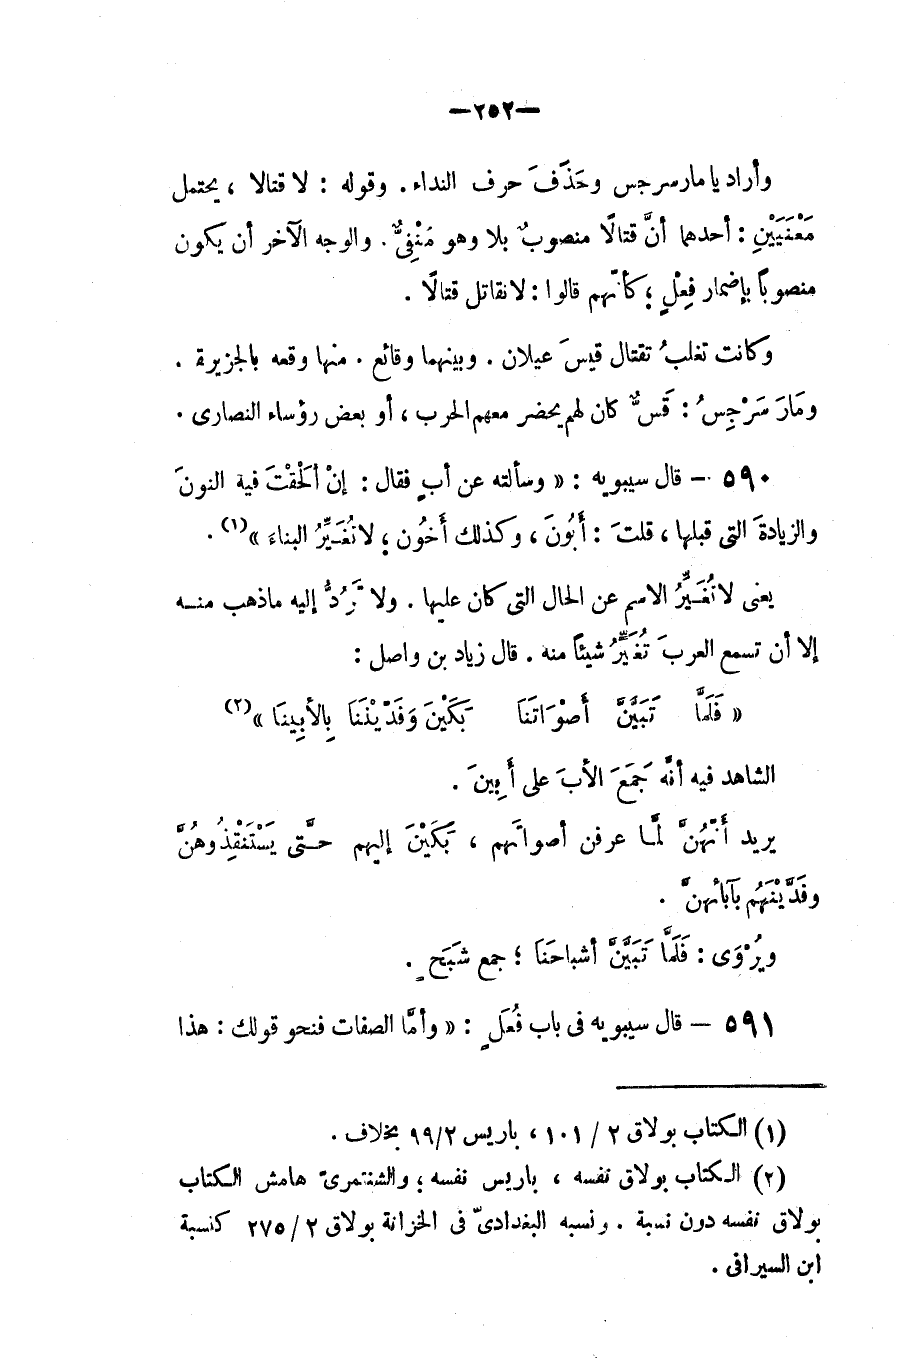 —٢٥٢—
وأراد يا مار سرجس وحَذَفَ حرف النداء. وقوله : لا قتالا ، يحتمل
مَعْنَيَيْنِ : أحدهما أنَّ قتالًا منصوبٌ بلا وهو مُنْفِيٌّ. والوجه الآخر أن يكون
منصوباً بإضمار فِعْلٍ ؛ كأنّهم قالوا : لا نقاتل قتالًا .
وكانت تغلبُ تقتال قيسَ عيلان . وبينهما وقائع . منها وقعه بالجزيرة .
ومَارَ سَرْجِسُ : قَسٌّ كان لهم يحضر معهم الحرب ، أو بعض رؤساء النصارى .
٥٩٠ – قال سيبويه : « وسألته عن أبٍ فقال : إنْ أَلْحَقْتَ فيه النونَ
والزيادةَ التى قبلها ، قلتَ : أَبُونَ ، وكذلك أَخُون ؛ لا نُغَيِّرُ البناء »(١) .
يعنى لا نُغَيِّرُ الاسم عن الحال التى كان عليها . ولا تَرُدُّ إليه ماذهب منه
إلا أن تسمع العربَ تُغَيِّرُ شيئاً منه . قال زياد بن واصل :
« فَلَمَّا تَبَيَّنَّ أَصْوَاتَنَا بَكَيْنَ وَفَدَّيْنَنَا بِالأَبِينَا »(٢)
الشاهد فيه أنَّه جَمَعَ الأبَ على أَبِينَ .
يريد أَنَّهُنَّ لمَّا عرفن أصواتَهم ، بَكَيْنَ إليهم حتَّى يَسْتَنْقِذُوهُنَّ
وفَدَّيْنَهُم بآبائهنَّ .
ويُرْوَى : فَلَمَّا تَبَيَّنَّ أشباحَنَا ؛ جمع شَبَحٍ .
٥٩١ – قال سيبويه فى باب فُعَلٍ : « وأمَّا الصفات فنحو قولك : هذا
(١) الكتاب بولاق ٢ / ١٠١ ، باريس ٩٩/٢ بخلاف .
(٢) الكتاب بولاق نفسه ، باريس نفسه ؛ والشنتمرىّ هامش الكتاب
بولاق نفسه دون نسبة . ونسبه البغدادىّ فى الخزانة بولاق ٢ / ٢٧٥ كنسبة
ابن السيرافى .